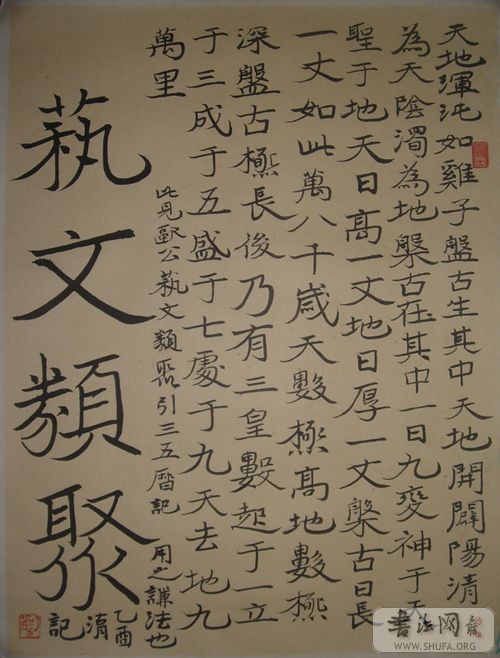 天地渾沌如雞子盤古生其中天地開闢陽清
為天陰濁為地槃古在其中一日九變神于天
聖于地天日髙一丈地日厚一丈槃古日長
一丈如此萬八千歳天數極髙地數極
深盤古極長後乃有三皇數起于一立
于三成于五盛于七處于九天去地九
萬里
此見歐公蓺文類聚引三五曆記 用之謙法也
蓺文類聚
乙酉
記
書法网
WWW.SHUFA.ORG